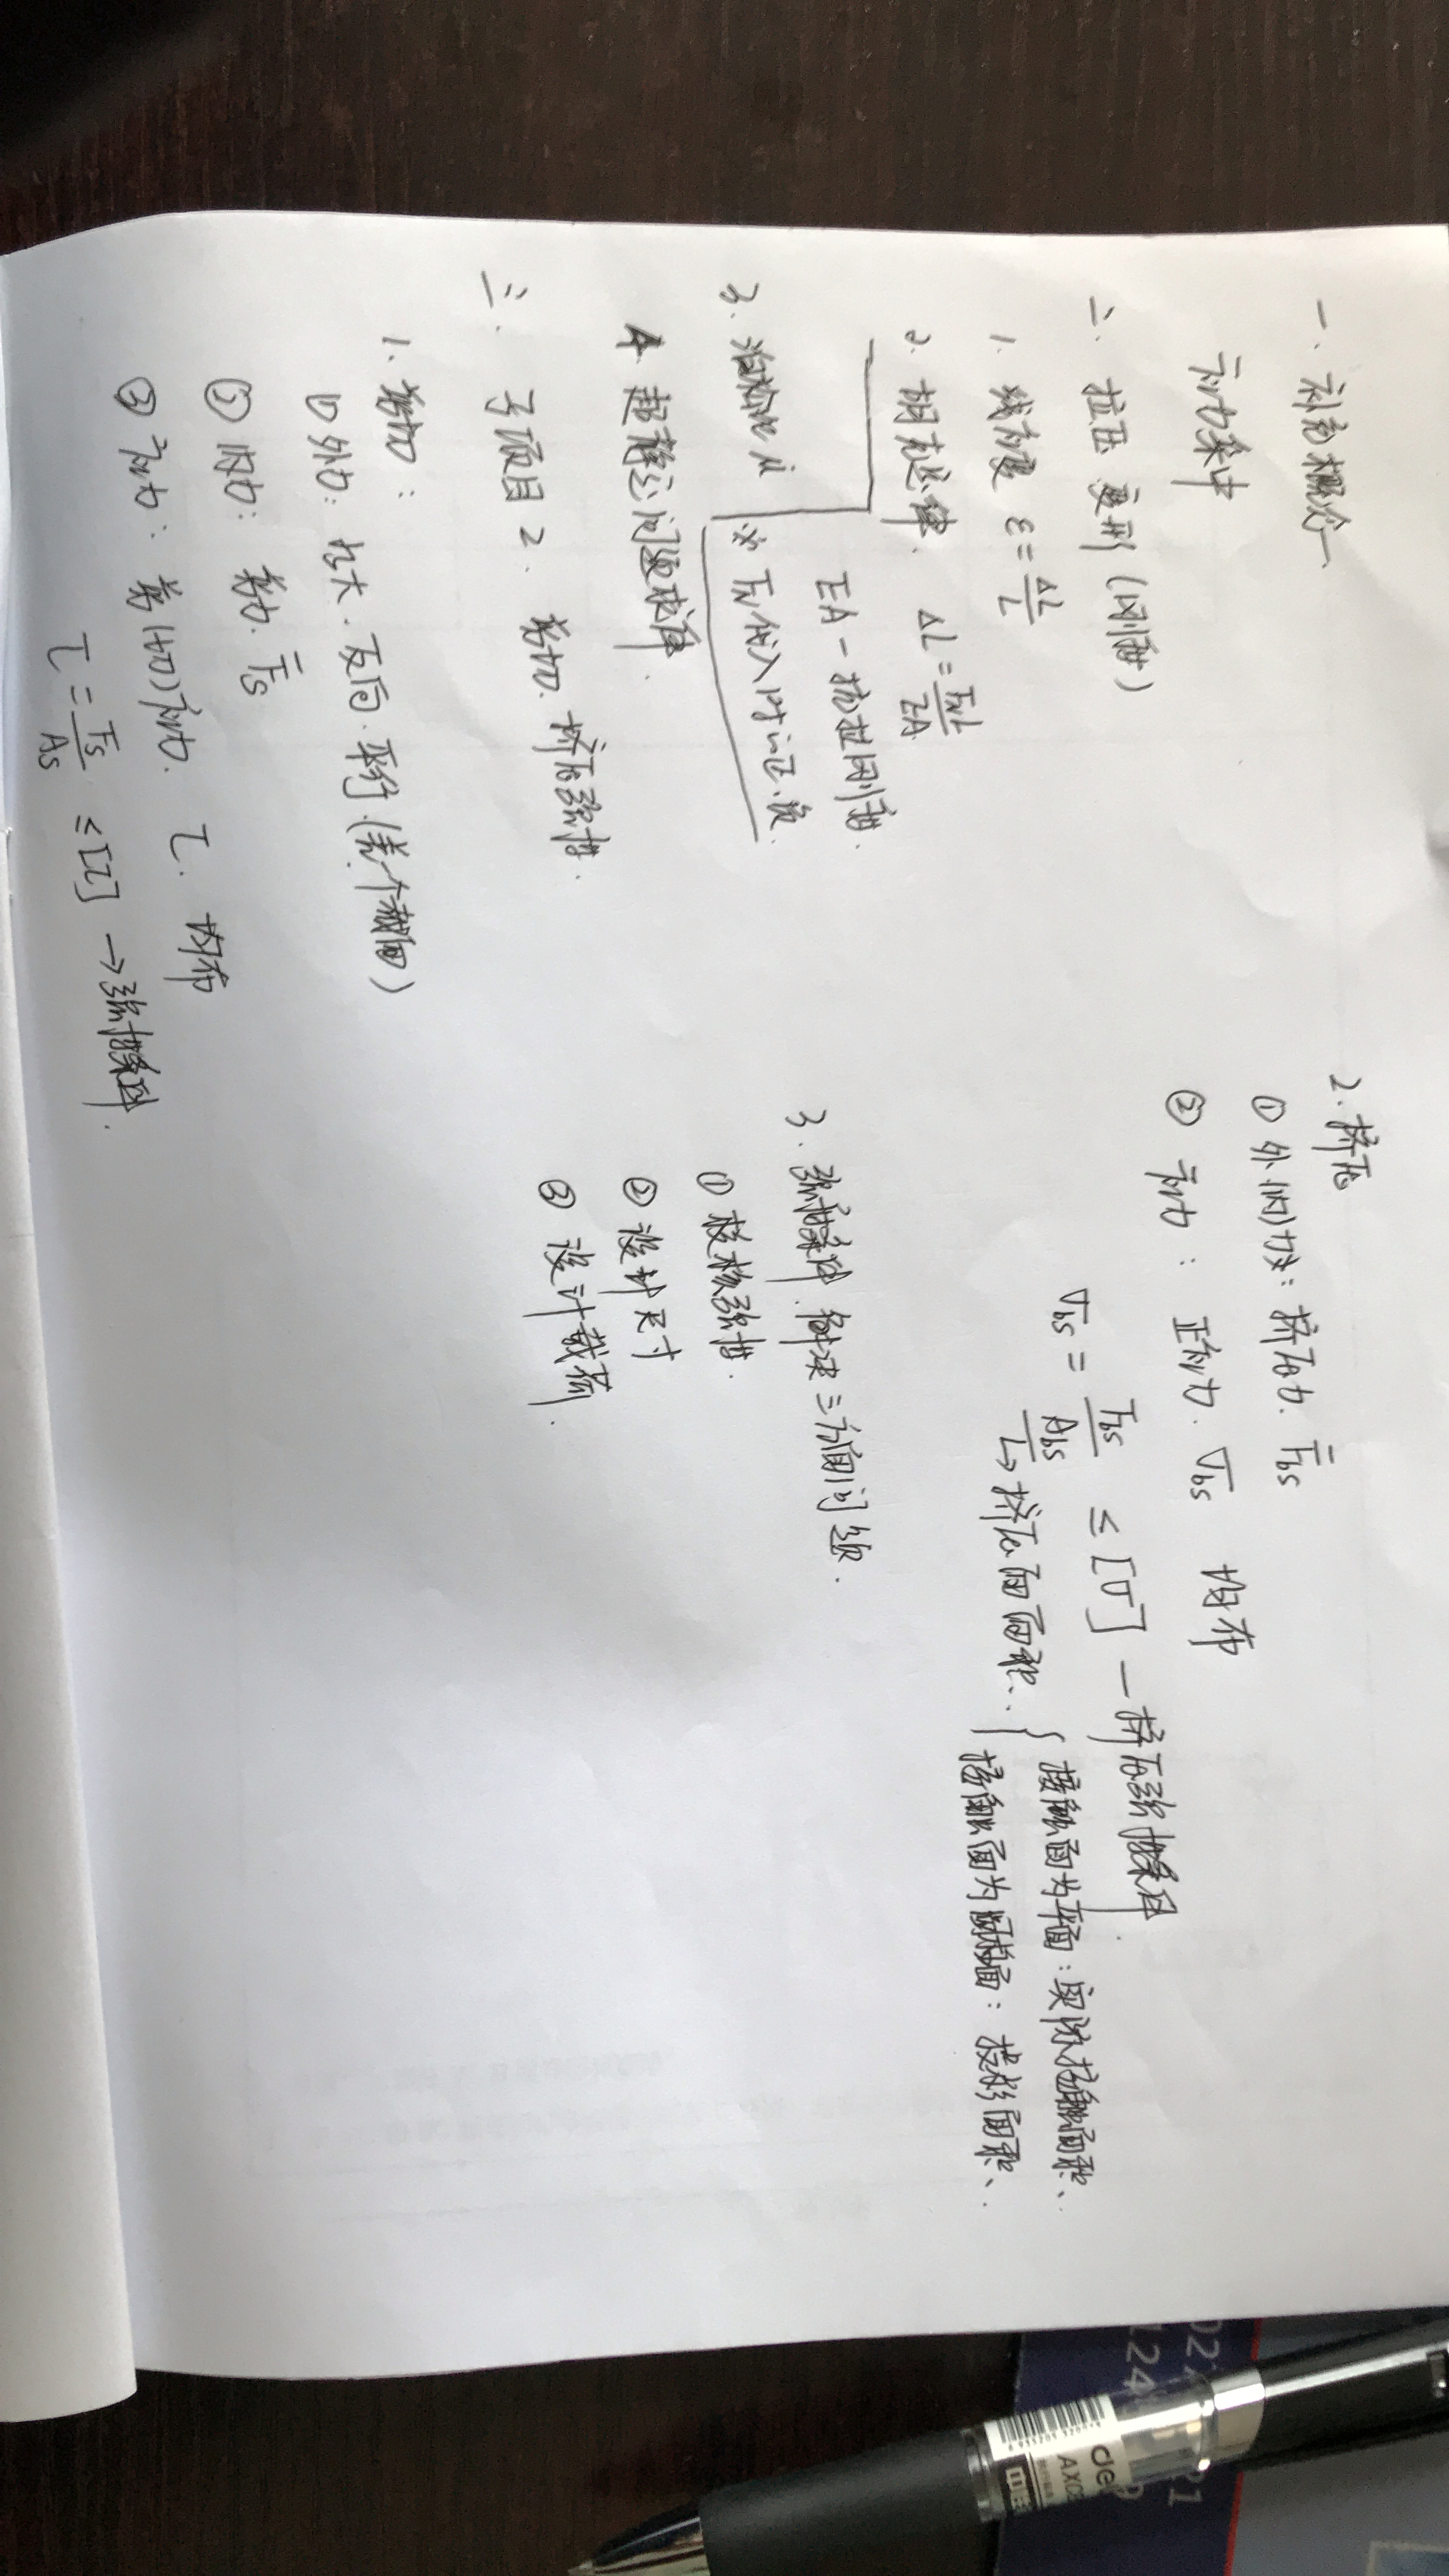 一. 补充概念
应力集中
二. 拉压 变形 (刚度)
1. 线应变 ε = ΔL/L
2. 胡克定律. ΔL = FNL/EA
EA - 抗拉刚度.
3. 泊松比 μ
※ FN代入时 正.负.
4. 超静定问题求解.
三. 子项目 2. 剪切. 挤压强度.
1. 剪切:
① 外力: 等大. 反向. 平行. (差一个截面)
② 内力: 剪力. Fs
③ 应力: 剪(切)应力. τ. 均布
τ = Fs/As ≤ [τ] → 强度条件.
2. 挤压
① 外(内)力: 挤压力. Fbs
② 应力: 正应力. σbs 均布
σbs = Fbs/Abs ≤ [σ] - 挤压强度条件.
↳ 挤压面面积. { 接触面为平面: 实际接触面积.
接触面为圆柱面: 投影面积.
3. 强度条件 解决三方面问题.
① 校核强度.
② 设计尺寸
③ 设计载荷.
de
AX08